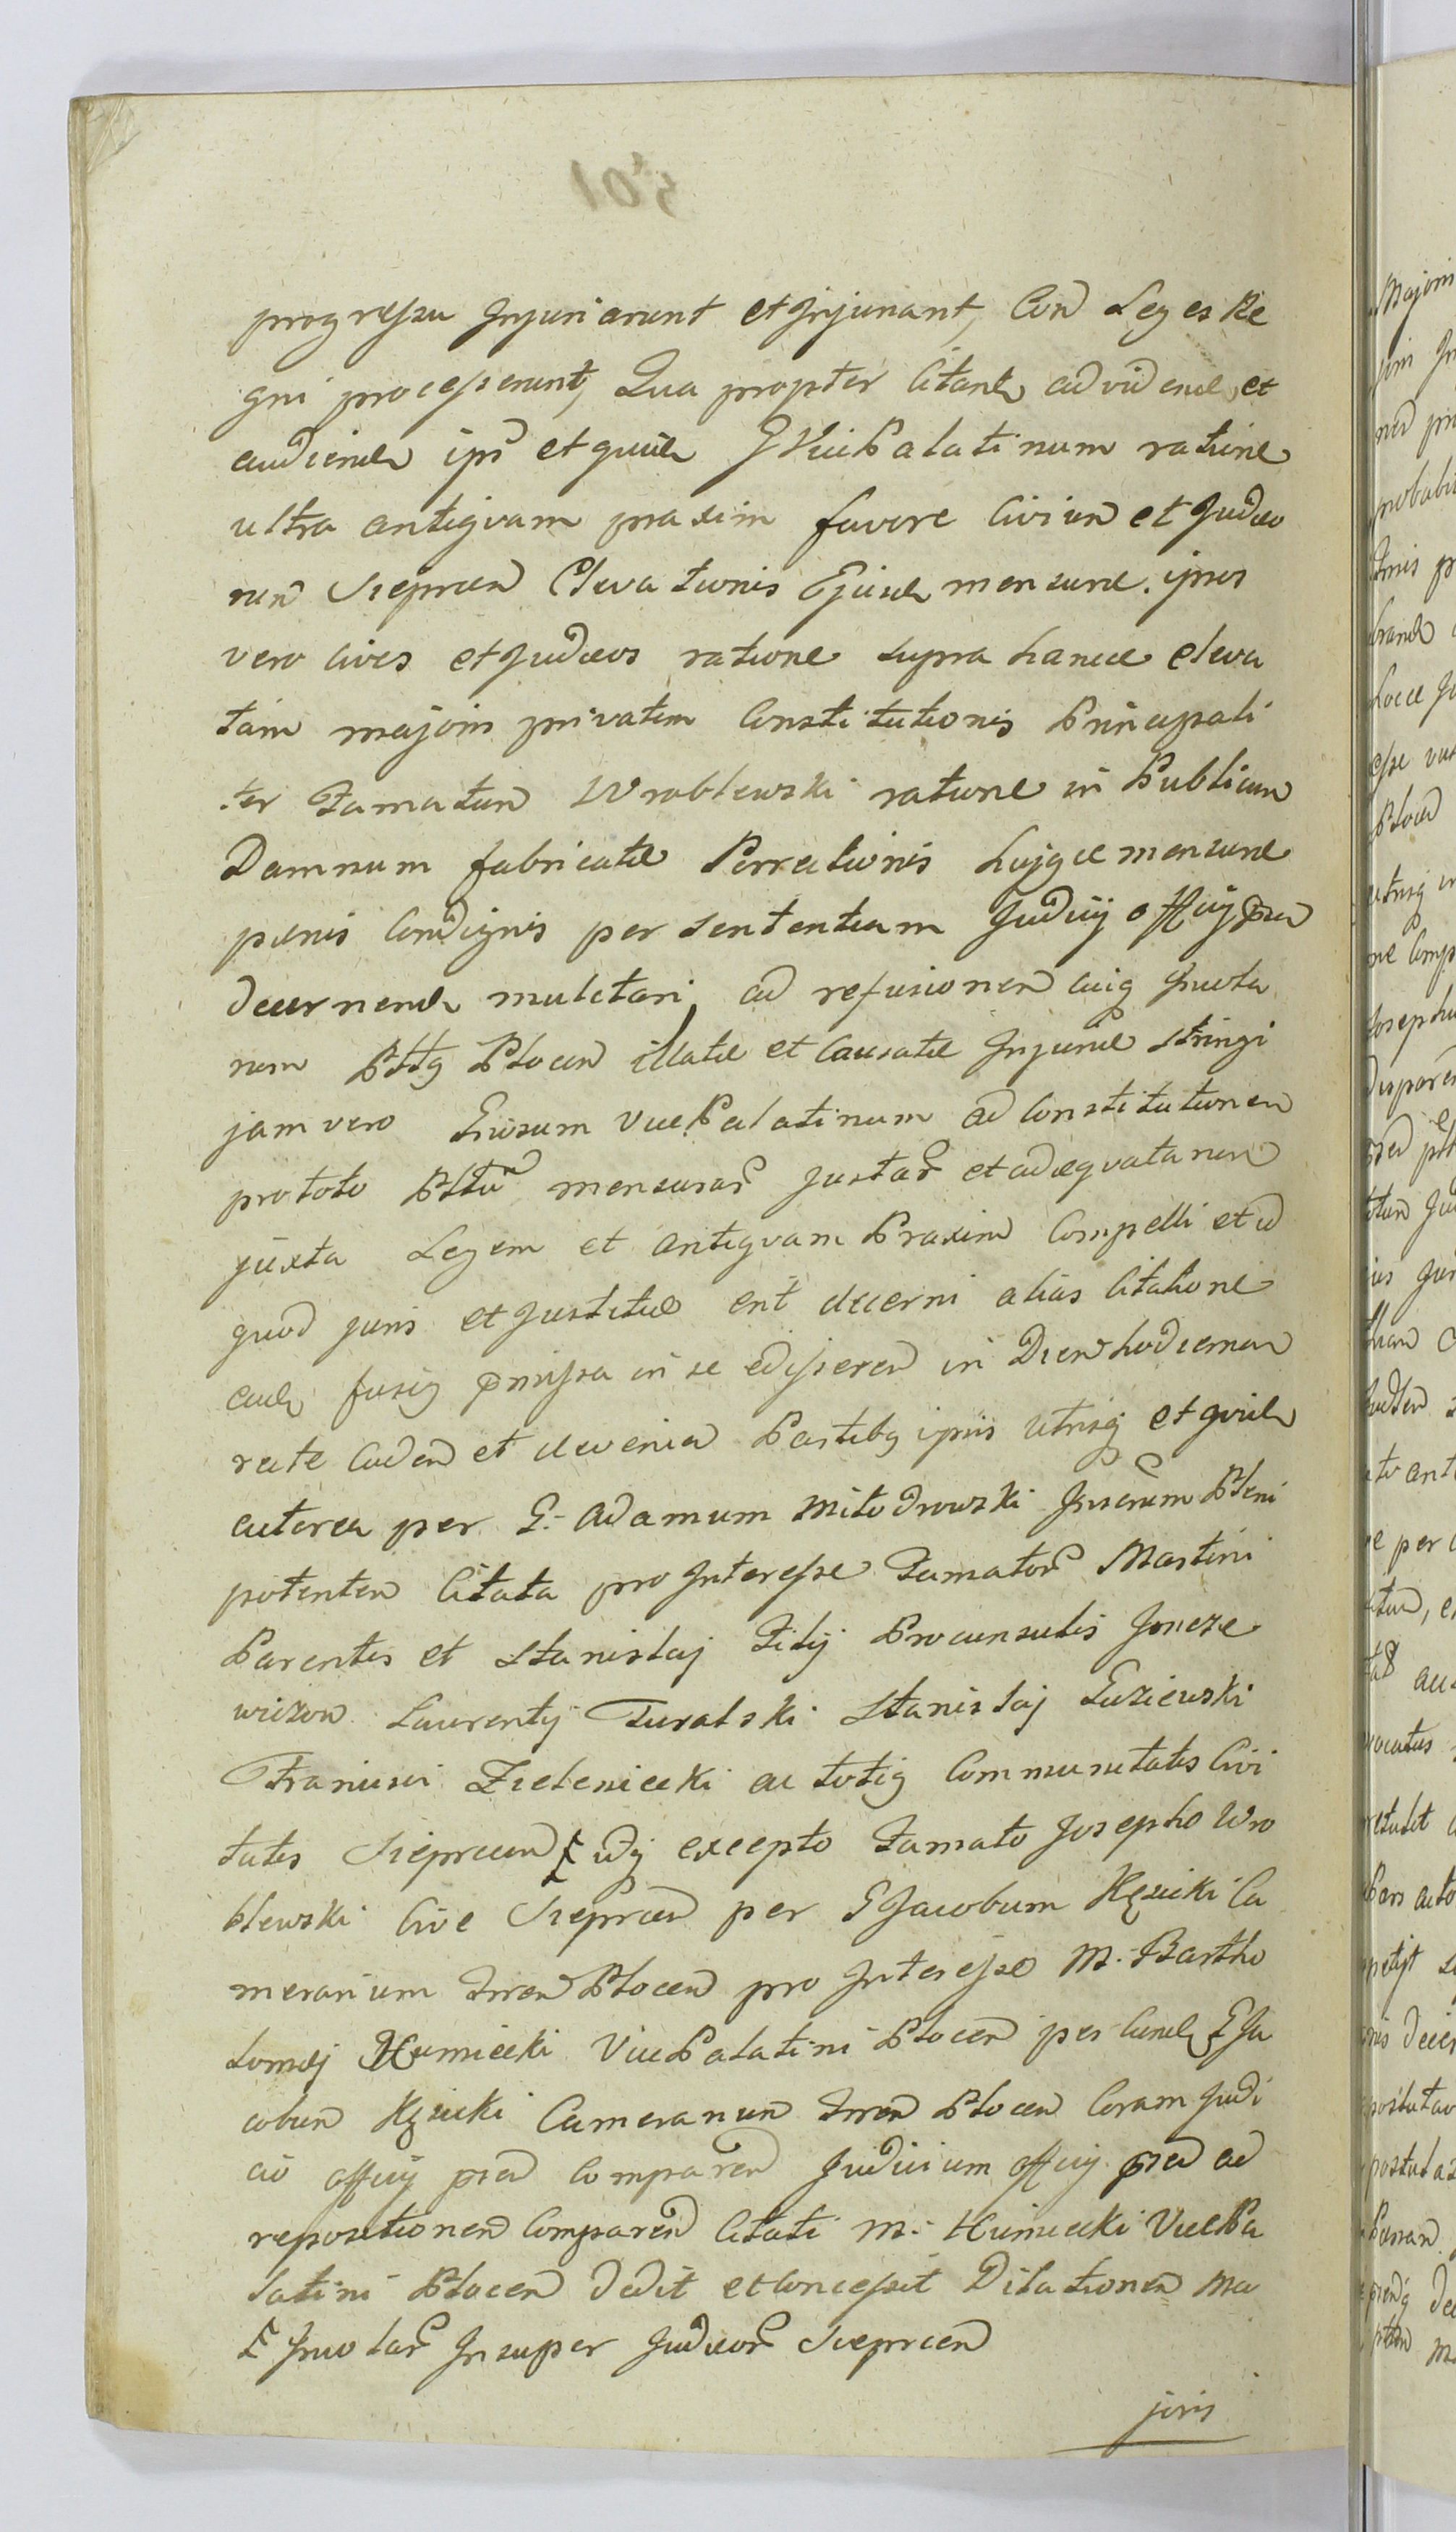 progressu Injuriarunt et Injuriant, Con Leges Re
gni processerunt, Qua propter Citand ad vidend et
audiend ips et quid G ViciPalatinum ratione
ultra antiquam praxim favore Civium et Judæo
run Sieprcen Elevationis Ejusd mensuræ. ipsos
vero Cives et Judæos ratione supra hancce eleva
tam majoris privatim Constitutionis Principali
ter Famatum Wroblewski ratione in Publicum
Damnum fabricatæ Porrectionis hujqce mensuræ
pœnis Condignis per Sententiam Judicij officij præd
decernend mulctari, ad refusionem cuiq Incola
rum Plttq Plocen illatæ et Causatæ Injuriæ stringi
jam vero Gnosum VicePalatinum ad Constitutionem
pro toto Plttu mensurar Justar et adæqvatarum
juxta Legem et antiqvam Praxim Compelli et id
quod juris et Justitiæ erit decerni alias Citatione
ead fusiq præmissa in se edisseren in Diem hodiernam
recte Caden et deveniens Partibq ipsis utrisq et qvid
actorea per G. Adamum Mitodrowski Juratum Pleni
potentem Citata pro Interesse Famator Martini
Parentis et Stanislaj Filij Proconsulis Joncze
wiczow Laurentij Turalski Stanislaj Guziewski
Francisci Zieleniecki ac totiq Communitatis Civi
tatis Sieprcen £ udq excepto Famato Josepho Wro
blewski Cive Sieprcen per G Jacobum Kęsicki Ca
merarium Trren Plocen pro Interesse M. Bartho
lomej Humiecki VicePalatini Plocen per Eund G Ja
cobum Kęsicki Camerarium Trren Plocen Coram Judi
cio officij præd Comparen Judicium officij præd ad
repositionem Comparen Citati M. Humiecki VicePa
latini Plocen Dedit et Concessit Dilationem ma
£ Incolar Insuper Judæor Sieprcen
joris